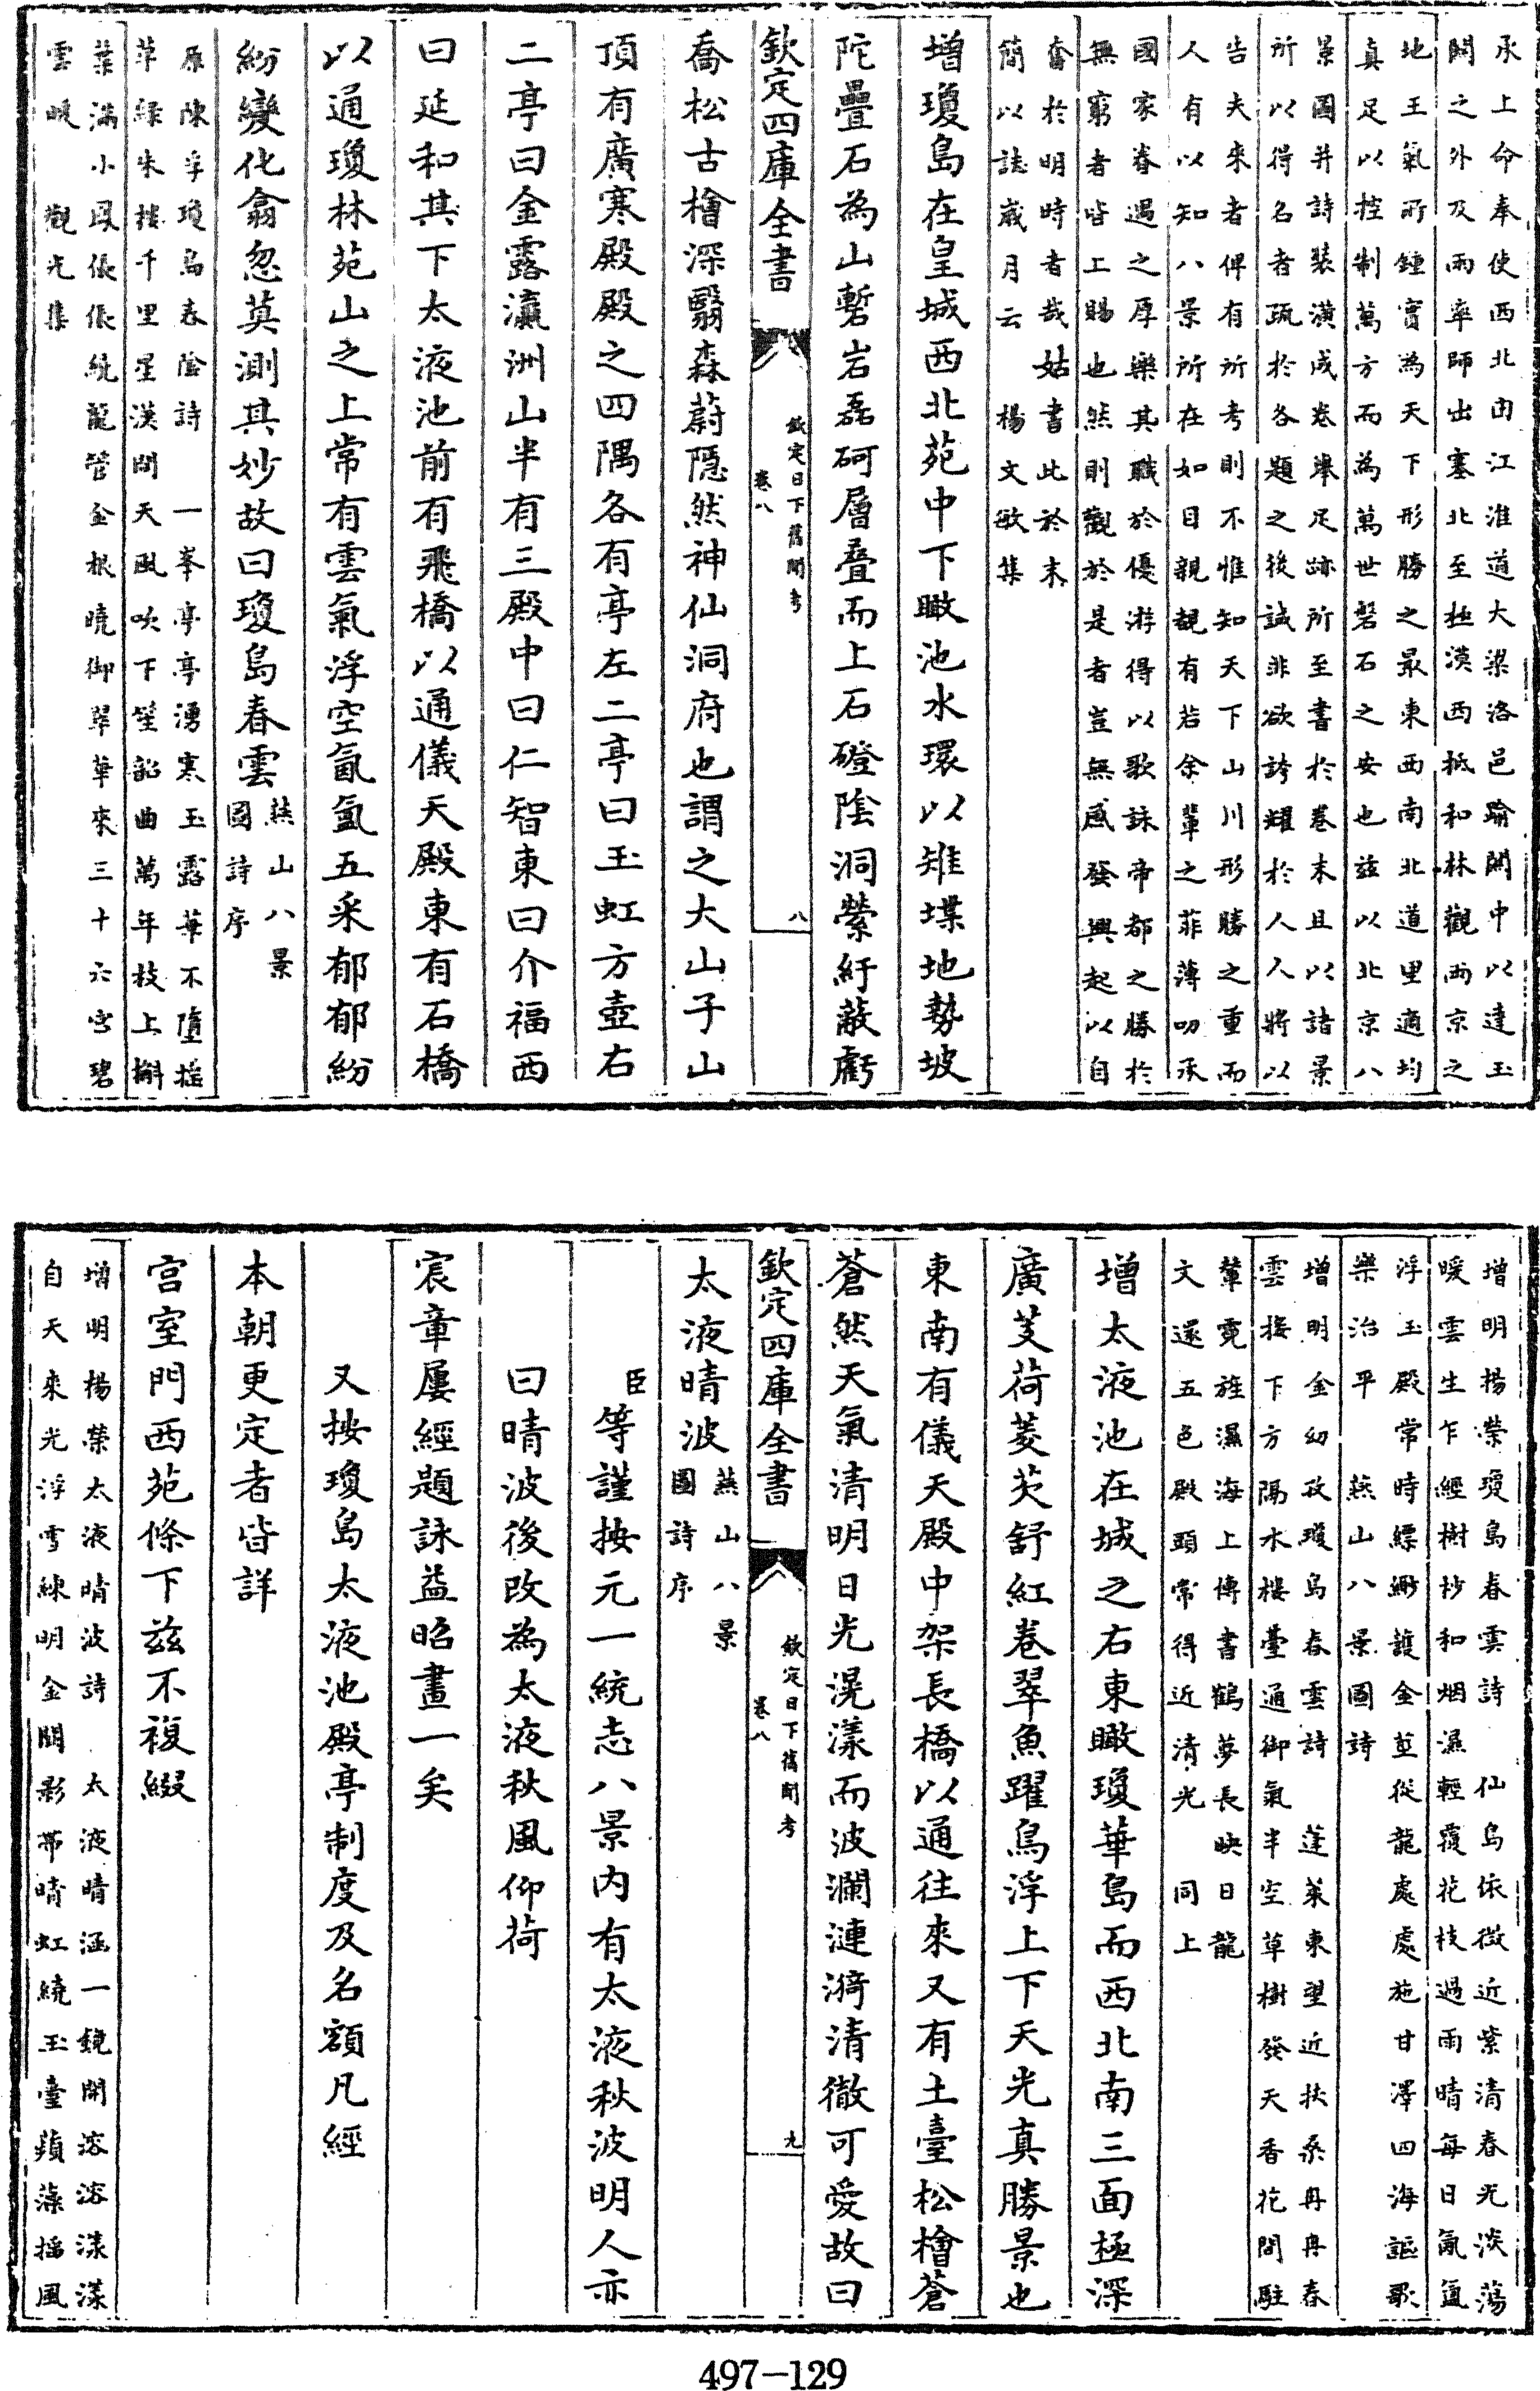 承上命奉使西北由江淮道大梁洛邑踰關中以達玉
關之外及兩率師出塞北至極漠西抵和林觀兩京之
地王氣所鍾實為天下形勝之最東西南北道里適均
真足以控制萬方而為萬世磐石之安也茲以北京八
景圖并詩裝潢成卷舉足跡所至書於卷末且以諸景
所以得名者疏於各題之後誠非欲誇耀於人人將以
告夫來者俾有所考則不惟知天下山川形勝之重而
人有以知八景所在如目親覩有若余輩之菲薄叨承
國家眷遇之厚樂其職於優游得以歌詠帝都之勝於
無窮者皆上賜也然則觀於是者豈無感發興起以自
奮於明時者哉姑書此於末
簡以誌歲月云 楊文敏集
增瓊島在皇城西北苑中下瞰池水環以雉堞地勢坡
陀疊石為山塹岩磊砢層叠而上石磴陰洞縈紆蔽虧
欽定四庫全書 欽定日下舊聞考 卷八 八
喬松古檜深翳森蔚隠然神仙洞府也謂之大山子山
頂有廣寒殿殿之四隅各有亭左二亭曰玉虹方壺右
二亭曰金露瀛洲山半有三殿中曰仁智東曰介福西
曰延和其下太液池前有飛橋以通儀天殿東有石橋
以通瓊林苑山之上常有雲氣浮空氤氳五采郁郁紛
紛變化翕忽莫測其妙故曰瓊島春雲 燕山八景
圖詩序
原陳孚瓊島春陰詩 一峯亭亭湧寒玉露華不墮搖
草緑朱樓千里星漢間天風吹下笙韶曲萬年枝上槲
葉滿小鳳倀倀統龍管金根曉御翠華來三十六宫碧
雲暖 觀光集
增明楊榮瓊島春雲詩 仙島依微近紫清春光淡蕩
暖雲生乍經樹杪和烟濕輕覆花枝過雨晴每日氤氳
浮玉殿常時縹緲護金莖從龍處處施甘澤四海謳歌
樂治平 燕山八景圖詩
增明金幼孜瓊島春雲詩 蓬萊東望近扶桑冉冉春
雲接下方隔水樓臺通御氣半空草樹發天香花間駐
輦霓旌濕海上傳書鶴夢長映日龍
文還五色殿頭常得近清光 同上
增太液池在城之右東瞰瓊華島而西北南三面極深
廣芰荷菱芡舒紅卷翠魚躍鳥浮上下天光真勝景也
東南有儀天殿中架長橋以通往來又有土臺松檜蒼
蒼然天氣清明日光滉漾而波瀾漣漪清徹可愛故曰
欽定四庫全書 欽定日下舊聞考 卷八 九
太液晴波 燕山八景
圖詩序
臣等謹按元一統志八景内有太液秋波明人亦
曰晴波後改為太液秋風仰荷
宸章屢經題詠益昭畫一矣
又按瓊島太液池殿亭制度及名額凡經
本朝更定者皆詳
宫室門西苑條下兹不複綴
增明楊榮太液晴波詩 太液晴涵一鏡開溶溶漾漾
自天來光浮雪練明金闕影帶晴虹繞玉臺蘋藻揺風
497-129